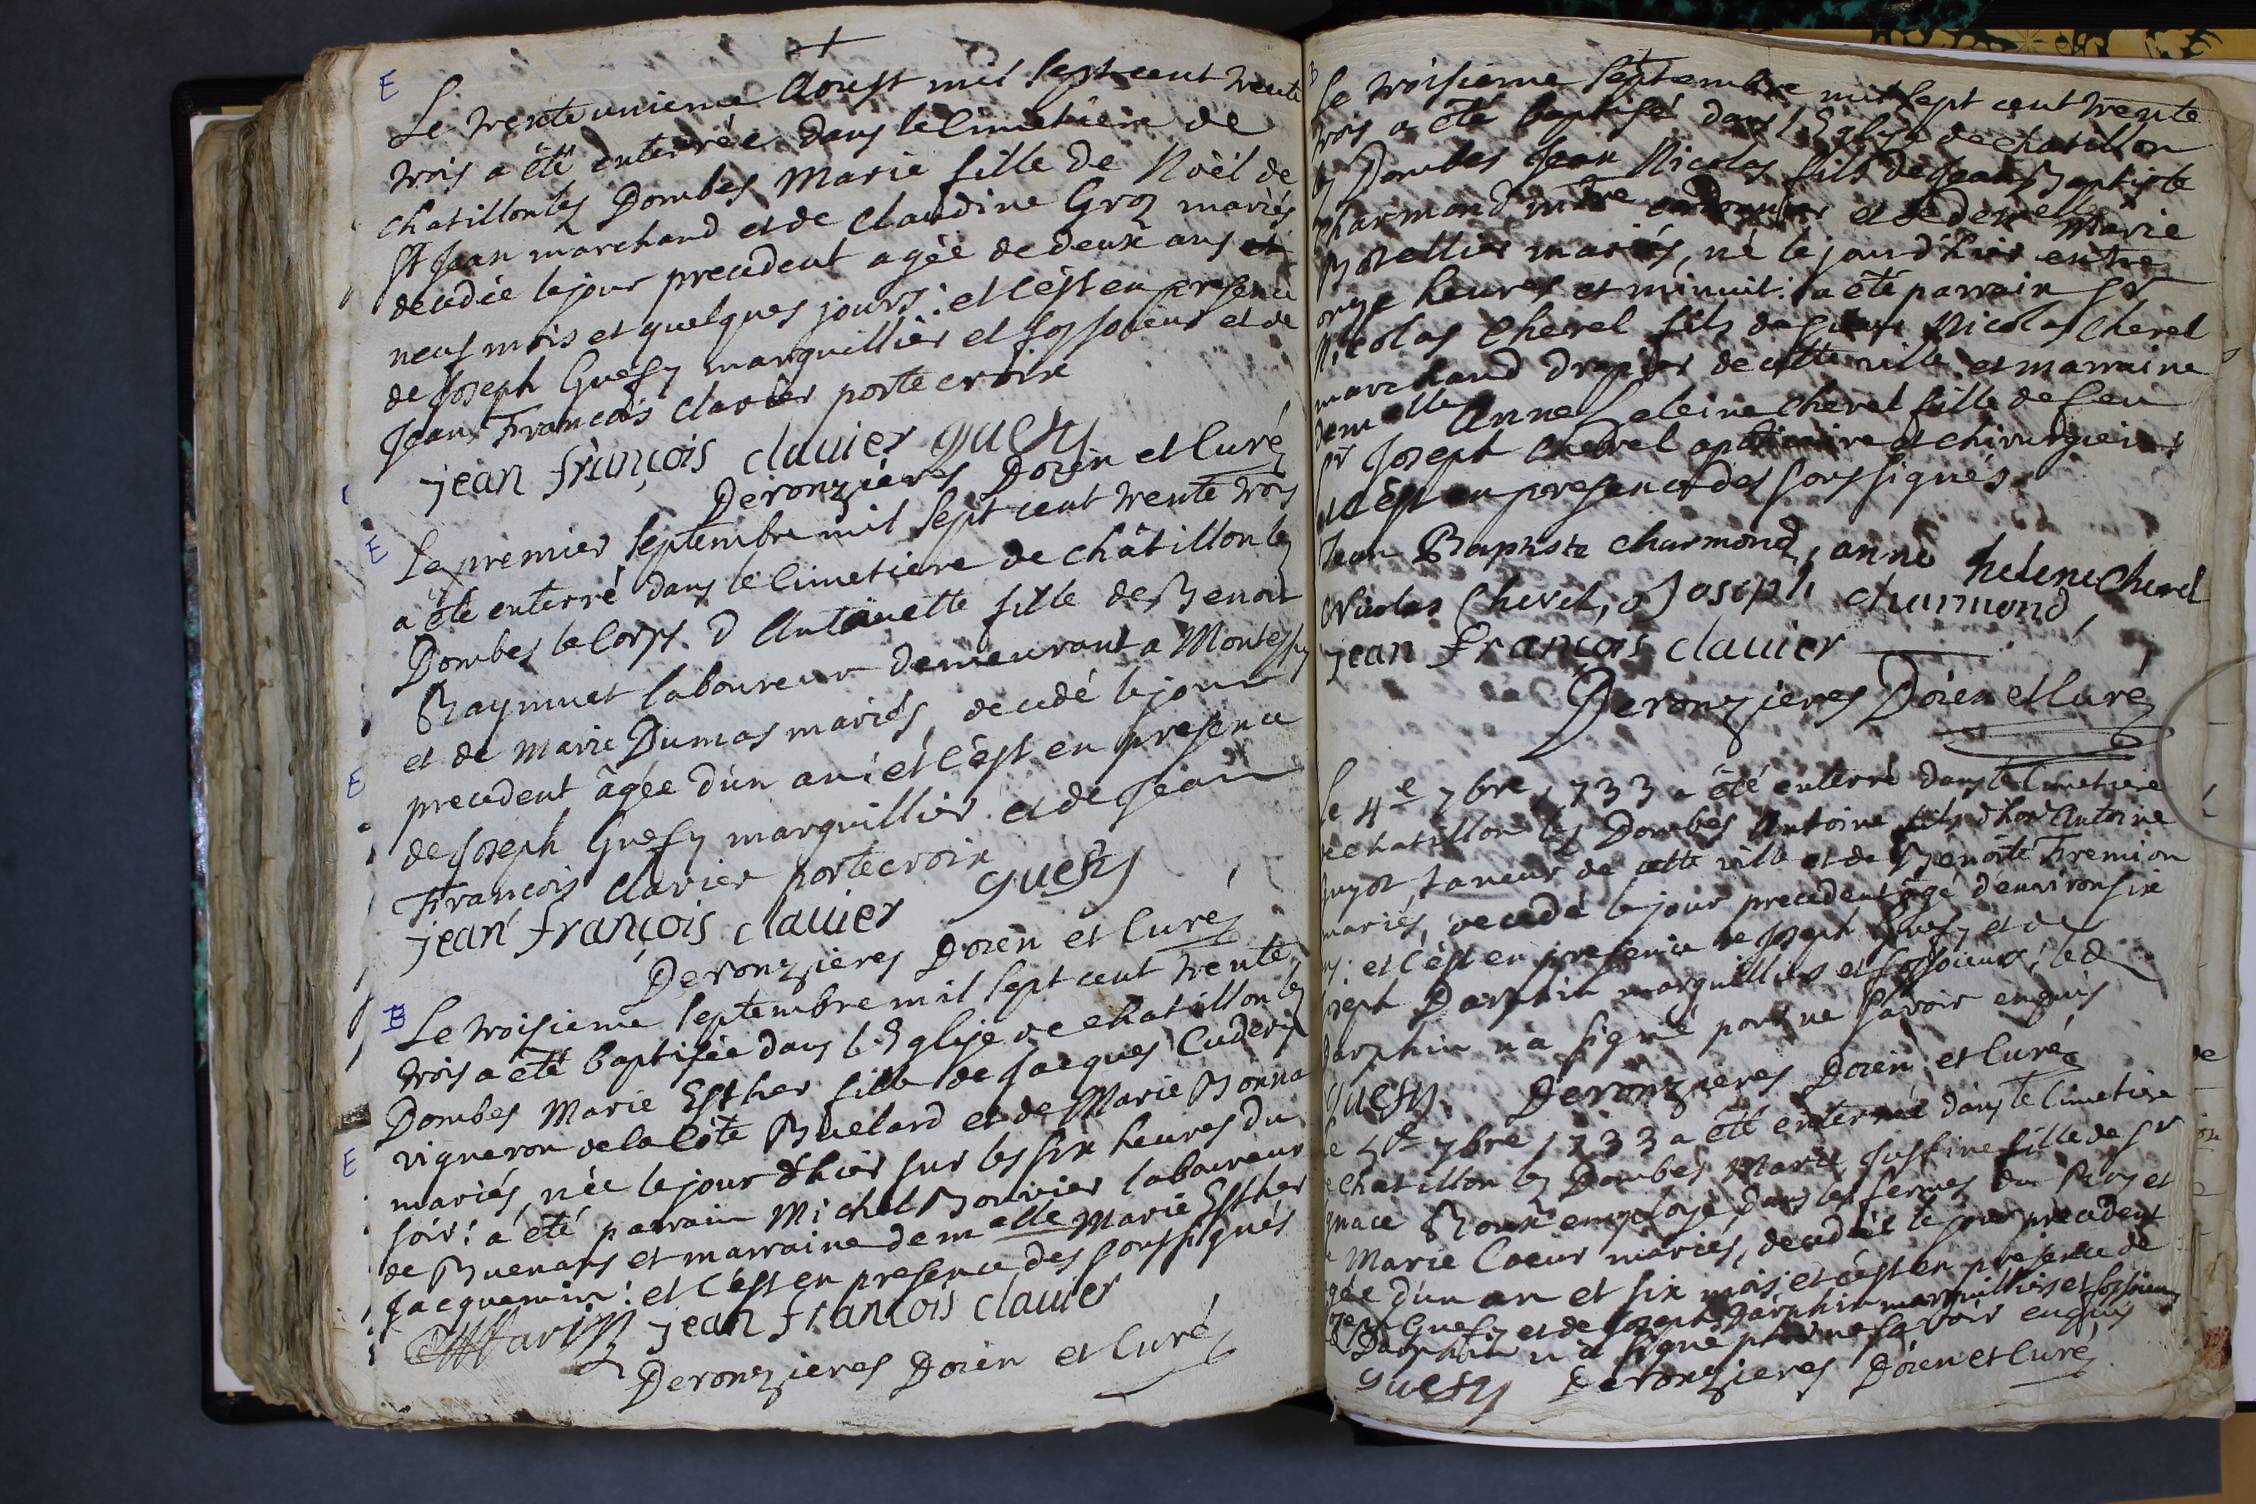 E
Le trente unieme Aoust mil sept cent trente
trois a été enterrée dans le Cimetiere de
chatillon les Dombes Marie fille de Noël de
St Jean marchand et de claudine Groz mariés
decedée le jour precedent agée de deux ans et
neuf mois et quelques jours : et c'est en presence
de Joseph Guesy marguillier et fossoieur et de
Jean Francois clavier porte croix
jean françois clauier guesy
Deronzieres Doien et Curé
E
Le premier Septembre mil sept cent trente trois
a été enterré dans le Cimetiere de châtillon lez
Dombes le Corps d'Antoinette fille de Benoit
Raymnet laboureur demeurant a Montessuy
et de Marie Dumas mariés, decedé le jour
E
precedent âgée d'un an : et c'est en presence
de Joseph Guesy marguillier et de Jean
Francois Clavier porte croix
jean françois clauier guesy
Deronzieres Doien et Curé
B Le troisieme Septembre mil sept cent trente
trois a été baptisée dans l'Eglise de chatillon lez
Dombes Marie Esther fille de Jacques Cudery
E
vigneron de la Côte Buelard et de Marie Bonna
mariés, née le jour d'hier sur les six heures du
soir : a été parrain Michel Bouvier laboureur
de Buenans et marraine demelle Marie Esther
Jacquemin : et c'est en presence des soussignés
jean françois clauier
Deronzieres Doien et Curé
B
Le troisieme Septembre mil sept cent trente
trois a été baptisé dans l'Eglise de chatillon
lez Dombes Jean Nicolas fils de Jean Baptiste
charmond mtre cordonnier et de demelle Marie
Botellier mariés, né le jour d'hier entre
onze heures et minuit : a été parrain Sr
Nicolas Cherel fils de Nicolas Cherel
marchand drapier de cette ville et marraine
demelle Anne Heleine Cherel fille de feu
Sr Joseph Cherel apoticaire et chirurgien :
et c'est en presence des soussignés
Jean Baptiste charmond, anne helene Cherel
Nicolas Cherel, Joseph charmond,
jean françois clauier
Deronzieres Doien et Curé
Le 4e 7bre 1733 a été enterré dans le Cimetiere
de chatillon les Dombes Antoine fils d'hon Antoine
Guyot taneur de cette ville et de Benoite Fremion
mariés, decedé le jour precedent âgé d'environ six
: et c'est en presence de Joseph Guesy et de
Joseph Darphin marguilliers et fossoieurs ; led
Darphin n'a signé pour ne savoir enquis
guesy Deronzieres Doien et Curé
Le 5e 7bre 1733 a été enterrée dans le Cimetiere
de chatillon lez Dombes Marie Justine fille de Sr
Ignace Roux employé dans les fermes du Roy et
de Marie Coeur mariés, decedée le jour precedent
agée d'un an et six mois : et c'est en presence de
Joseph Guesy et de Joseph Darphin marguilliers et fossoieurs
Darphin n'a signé pour ne savoir enquis
guesy Deronzieres Doien et Curé